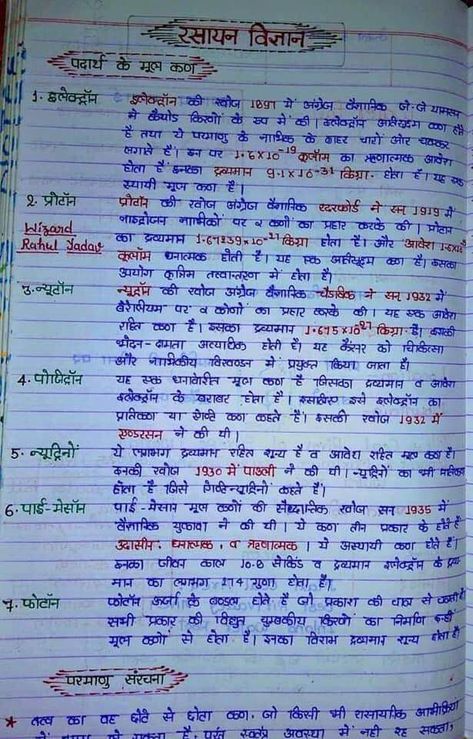 रसायन विज्ञान
पदार्थ के मूल कण
1. इलेक्ट्रॉन इलेक्ट्रॉन की खोज 1897 में अंग्रेज वैज्ञानिक जे. जे थामसन
ने कैथोड किरणों के रूप में की। इलेक्ट्रॉन अतिसूक्ष्म कण होते
है तथा ये परमाणु के नाभिक के बाहर चारों ओर चक्कर
लगाते हैं। इन पर 1.6×10⁻¹⁹ कूलॉम का ऋणात्मक आवेश
होता है इनका द्रव्यमान 9.1×10⁻³¹ किग्रा. होता है। यह एक
स्थायी मूल कण है।
2. प्रोटॉन प्रोटॉन की खोज अंग्रेज वैज्ञानिक रदरफोर्ड ने सन् 1919 में
नाइट्रोजन नाभिकों पर α कणों का प्रहार करके की। प्रोटॉन
Wizard का द्रव्यमान 1.67239×10⁻²⁷ किग्रा होता है। और आवेश
Rahul Yadav कूलॉम धनात्मक होती है। यह एक अतिसूक्ष्म कण है। इसका
उपयोग कृत्रिम तत्वान्तरण में होता है।
3. न्यूट्रॉन न्यूट्रॉन की खोज अंग्रेज वैज्ञानिक चैडविक ने सन् 1932 में
बेरीलियम पर α कणों का प्रहार करके की। यह एक आवेश
रहित कण है। इसका द्रव्यमान 1.675×10²⁷ किग्रा. है। इसकी
भेदन-क्षमता अत्यधिक होती है। यह कैंसर की चिकित्सा
और नाभिकीय विखण्डन में प्रयुक्त किया जाता है।
4. पोजिट्रॉन यह एक धनावेशित मूल कण है जिसका द्रव्यमान व आवेश
इलेक्ट्रॉन के बराबर होता है। इसलिए इसे इलेक्ट्रॉन का
प्रतिकण या एण्टि कण कहते हैं। इसकी खोज 1932 में
एण्डरसन ने की थी।
5. न्यूट्रिनों ये लगभग द्रव्यमान रहित शून्य है व आवेश रहित मूल कण है।
इनकी खोज 1930 में पाउली ने की थी। न्यूट्रिनों का भी प्रतिकण
होता है जिसे एण्टिन्यूट्रिनों कहते हैं।
6. पाई-मेसॉन पाई-मेसान मूल कणों की सैद्धान्तिक खोज सन 1935 में
वैज्ञानिक युकावा ने की थी। ये कण तीन प्रकार के होते हैं
उदासीन, धनात्मक, व ऋणात्मक। ये अस्थायी कण होते हैं।
इनका जीवन काल 10-8 सेकेंड व द्रव्यमान इलेक्ट्रॉन के द्रव्य
मान का लगभग 274 गुणा होता है।
7. फोटॉन फोटॉन ऊर्जा के बण्डल होते है जो प्रकाश की चाल से चलते हैं।
सभी प्रकार की विद्युत चुम्बकीय किरणों का निर्माण इन्हीं
मूल कणों से होता है। इनका विराम द्रव्यमान शून्य होता है।
परमाणु संरचना
* तत्व का वह छोटे से छोटा कण, जो किसी भी रासायनिक अभिक्रिया
में भाग ले सकता है, परंतु स्वतंत्र अवस्था में नही रह सकता,